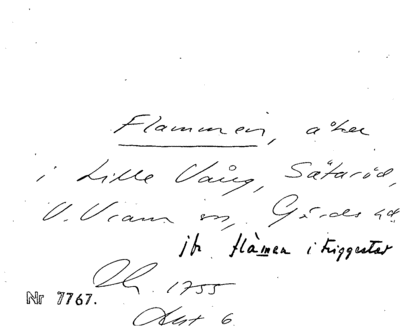 Flammen, åker
i Lille Vång, Sätaröd,
V. Vram sn, Gärds hd.
jfr flàmen i Friggestad
1755
Nr 7767.
Akt 6